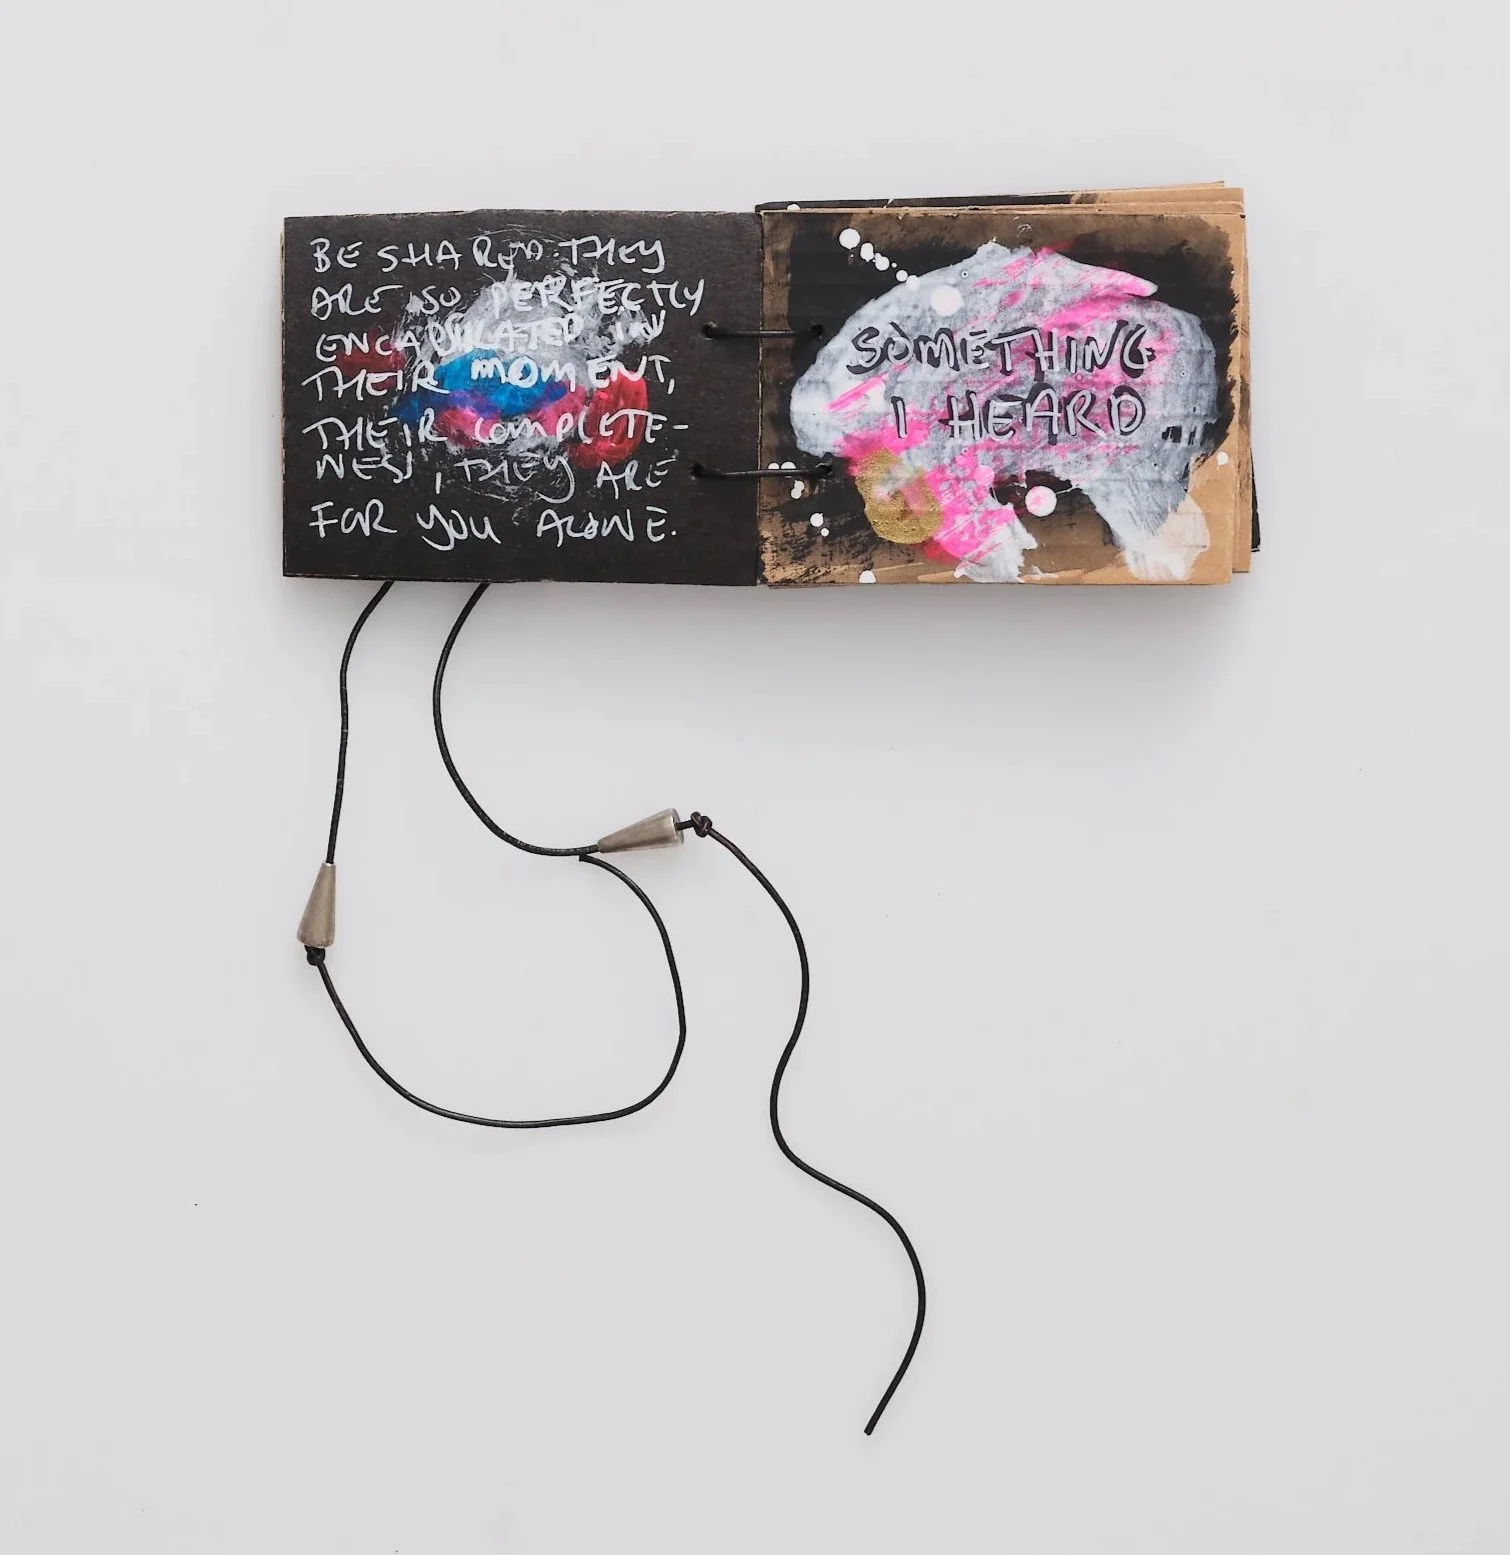 BE SHARED. THEY
ARE SO PERFECTLY
ENCAPSULATED IN
THEIR MOMENT,
THEIR COMPLETE-
NESS, THEY ARE
FOR YOU ALONE.
SOMETHING
I HEARD